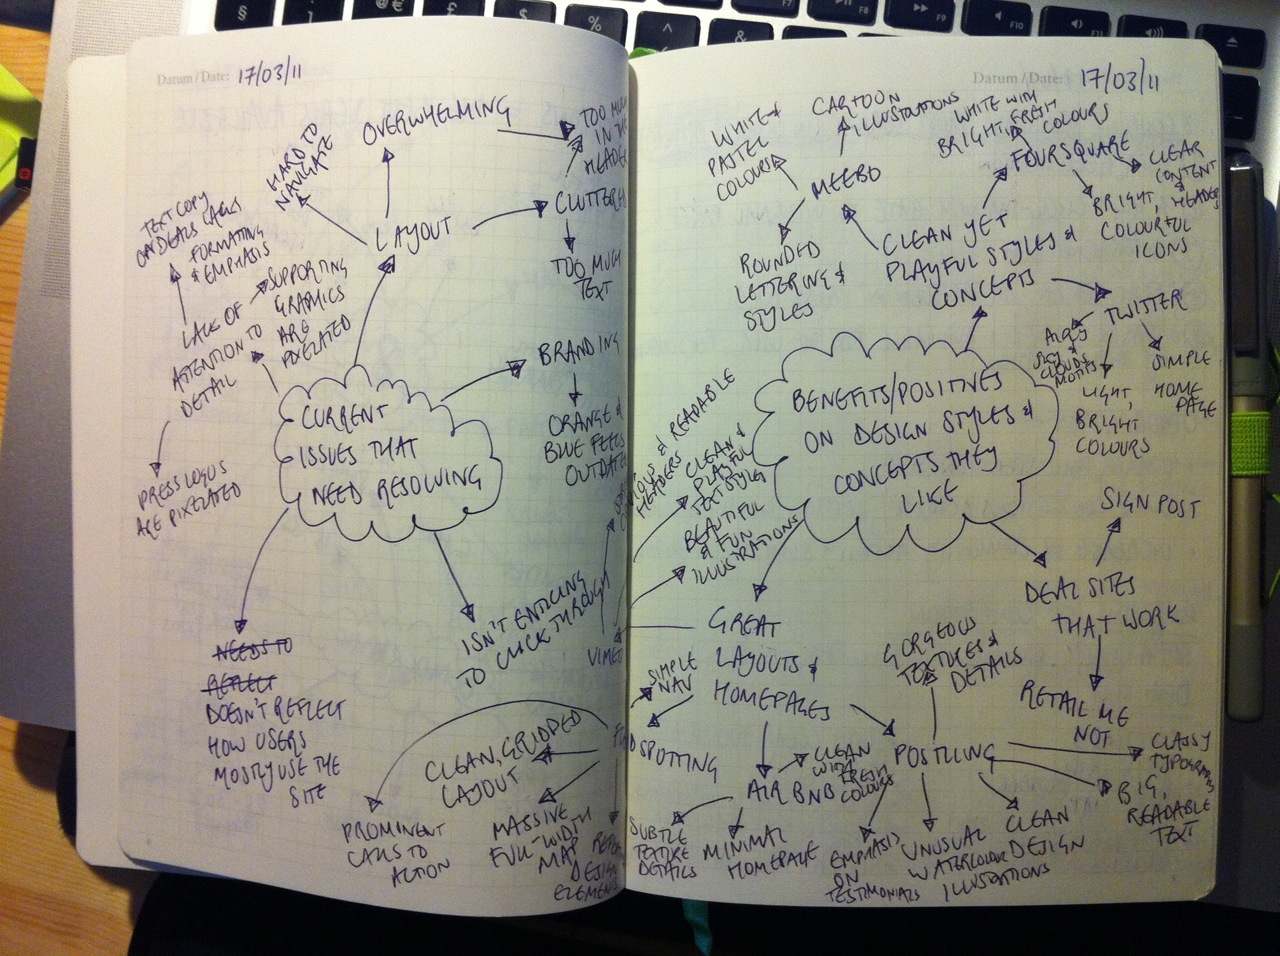 Datum / Date: 17/03/11
OVERWHELMING
TOO MU
IN THE
HEADER
HARD TO
NAVIGATE
CLUTTER
TOO MUCH
TEXT
LAYOUT
TEXT COPY
ON DEALS LACKS
FORMATING
& EMPHASIS
SUPPORTING
GRAPHICS
ARE
PIXELATED
LACK OF
ATTENTION TO
DETAIL
PRESS LOGOS
ARE PIXELATED
BRANDING
ORANGE &
BLUE FEELS
OUTDATE
CURRENT
ISSUES THAT
NEED RESOLVING
ISN'T ENTICING
TO CLICK THROUGH
NEEDS TO
REFLECT
DOESN'T REFLECT
HOW USERS
MOSTLY USE THE
SITE
VIMEO
CLEAN, GRIDPED
LAYOUT
PROMINENT
CALLS TO
ACTION
MASSIVE
FULL-WIDTH
MAP
DESIGN
ELEMENTS
Datum / Date: 17/03/11
WHITE &
PASTEL
COLOURS
CARTOON
ILLUSTRATIONS
WHITE WITH
BRIGHT, FRESH
COLOURS
MEEBO
FOURSQUARE
CLEAR
CONTENT
& HEADERS
BRIGHT,
COLOURFUL
ICONS
ROUNDED
LETTERING &
STYLES
CLEAN YET
PLAYFUL STYLES &
CONCEPTS
TWITTER
AIRY
SKY &
CLOUDS
MOTIFS
LIGHT,
BRIGHT
COLOURS
SIMPLE
HOME
PAGE
BENEFITS/POSITIVES
ON DESIGN STYLES &
CONCEPTS THEY
LIKE
& READABLE
HEADERS
CLEAN &
PLAYFUL
TEXT STYLES
BEAUTIFUL
& FUN
ILLUSTRATIONS
SIGN POST
DEAL SITES
THAT WORK
RETAIL ME
NOT
GREAT
LAYOUTS &
HOMEPAGES
SIMPLE
NAV
DSPOTTING
AIR BNB
CLEAN
WITH
FRESH
COLOURS
SUBTLE
TEXTURE
DETAILS
MINIMAL
HOMEPAGE
GORGEOUS
TEXTURES &
DETAILS
POSTLING
CLASSY
BIG,
READABLE
TEXT
EMPHASIS
ON
TESTIMONIALS
UNUSUAL
WATERCOLOUR
ILLUSTRATIONS
CLEAN
DESIGN